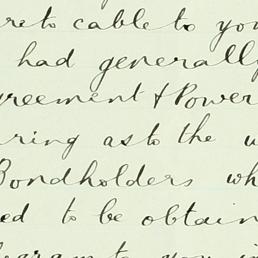 re to cable to you
had generally
greement & Power
ring as to the u
Bondholders wh
ed to be obtain
gram to you in